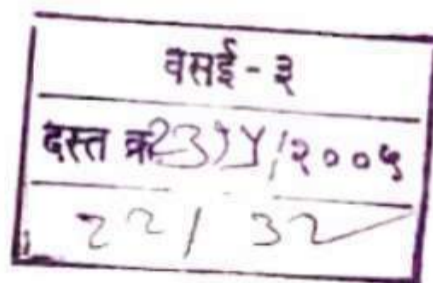 वसई - ३
दस्त क्र २३१५/२००५
२२ / ३२